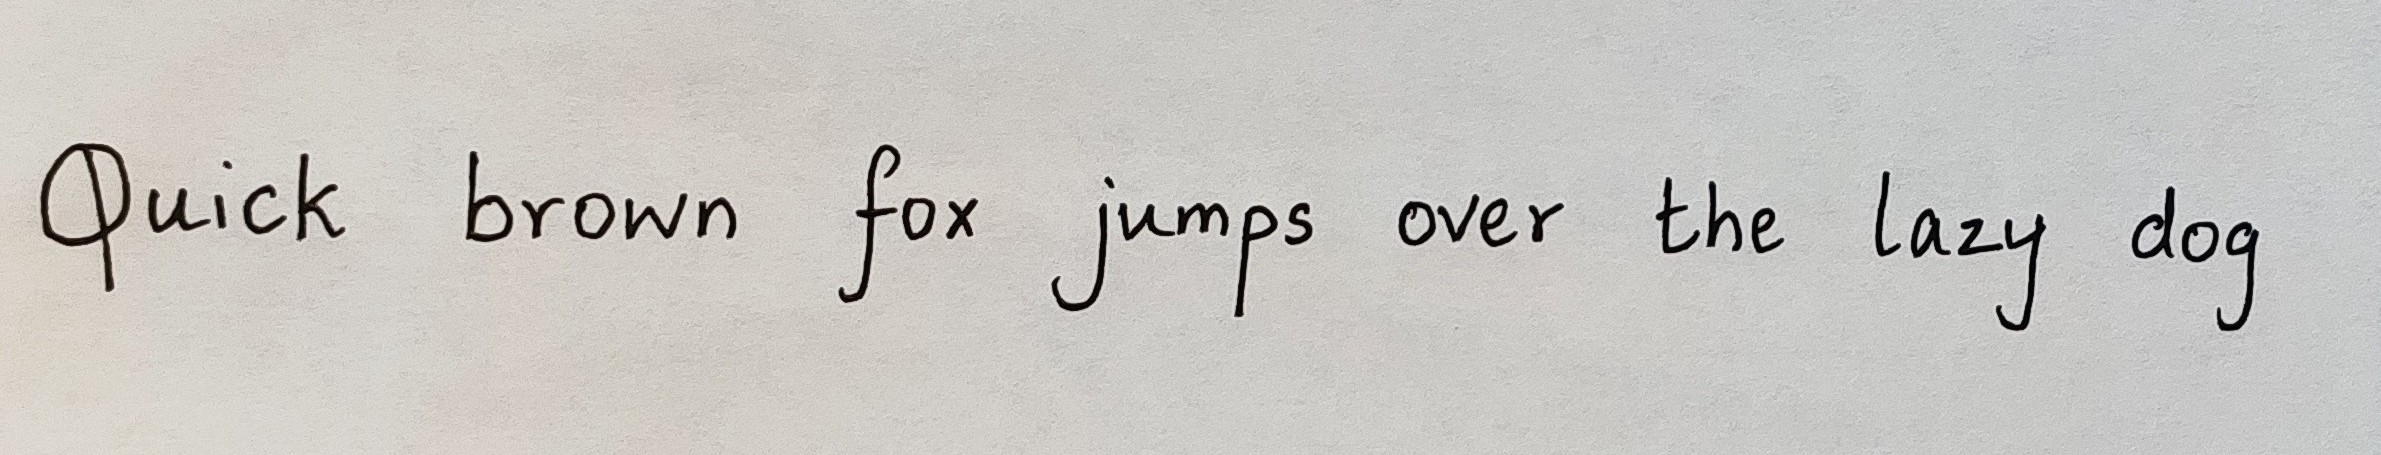 Quick brown fox jumps over the lazy dog